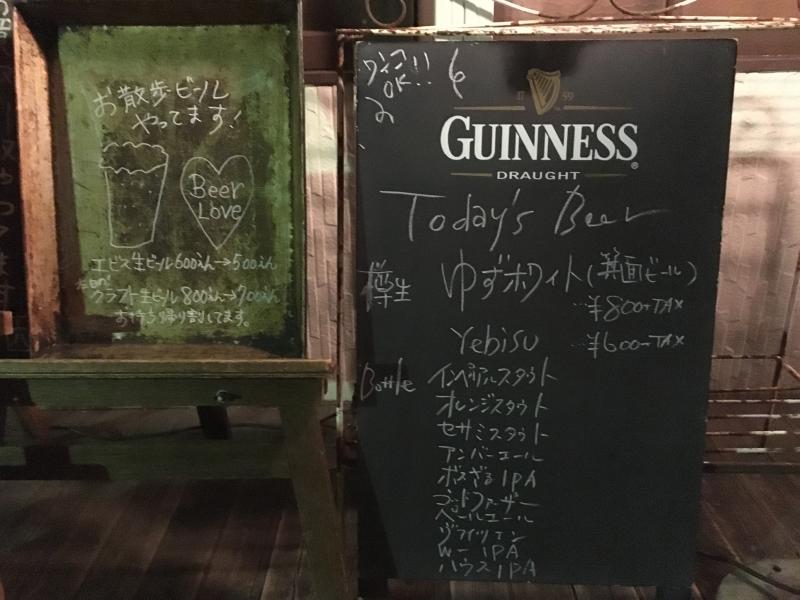 お散歩ビール
やってます!
Beer
Love
エビス生ビール600えん→500えん
クラフト生ビール800えん→700えん
お持ち帰り割してます。
ワンコ
OK!!
17 59
GUINNESS
DRAUGHT
Today's Beer
樽生 ゆずホワイト(箕面ビール)
...¥800+TAX
Yebisu ...¥600+TAX
Bottle インペリアルスタウト
オレンジスタウト
セサミスタウト
アンバーエール
ボスざるIPA
ゴッドファーザー
ペールエール
ヴァイツェン
W-IPA
ハウスIPA